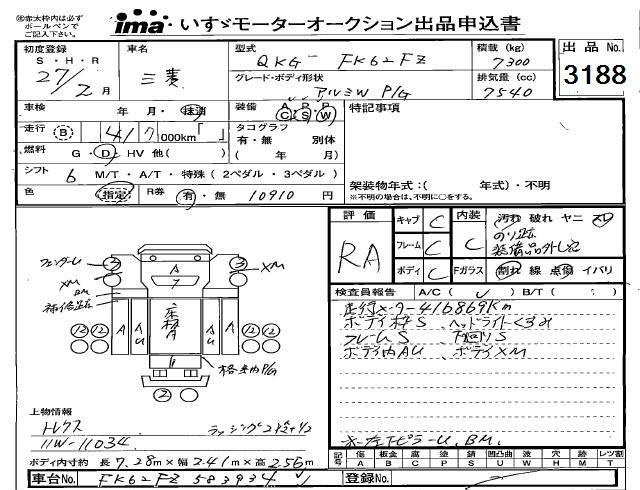 ㊟赤太枠内は必ず
ボールペンで
ご記入下さい。
ima いすゞモーターオークション出品申込書
初度登録
S・H・R
27/2月
車名
三菱
型式
QKG- FK62FZ
グレード・ボディ形状
アルミW P/G
積載 (kg)
7300
排気量 (cc)
7540
出品No.
3188
車検 年 月・抹消
装備 A P R
C S W
特記事項
走行 B 417 000km「 」
タコグラフ
有・無 別体
( 年 月)
燃料 G・D・HV 他( )
シフト 6 M/T・A/T・特殊(2ペダル・3ペダル)
色 指定 R券 有・無 10910 円
架装物年式:( 年式)・不明
※不明の場合は、不明に○をする。
評価 RA
キャブ C
フレーム C
ボディ C
内装 C
汚れ 破れ ヤニ スレ
のり跡
装備品外し跡
Fガラス 割れ 線 点傷 イバリ
検査員報告 A/C( ) B/T( )
走行メーター416869Km
ボディ枠S、ヘッドライトくすみ
フレームS、下回りS
ボディ内AU、ボディXM
フェンダーL
XM
XM
補修跡
A
7
A
AU
床板A
AU
A
格納P/G
3
3
12
12
12
12
2
上物情報
トレクス
11W-11034
ラッシング2段
ボディ内寸約 長 7.28m×幅 2.41m×高 2.56m
車台No. FK62FZ 583934
記号
傷 A
凹 B
板金 B
腐 C
塗 P
錆 S
凹凸曲 U
波 W
穴 H
跡 M
レツ割 T
登録No.